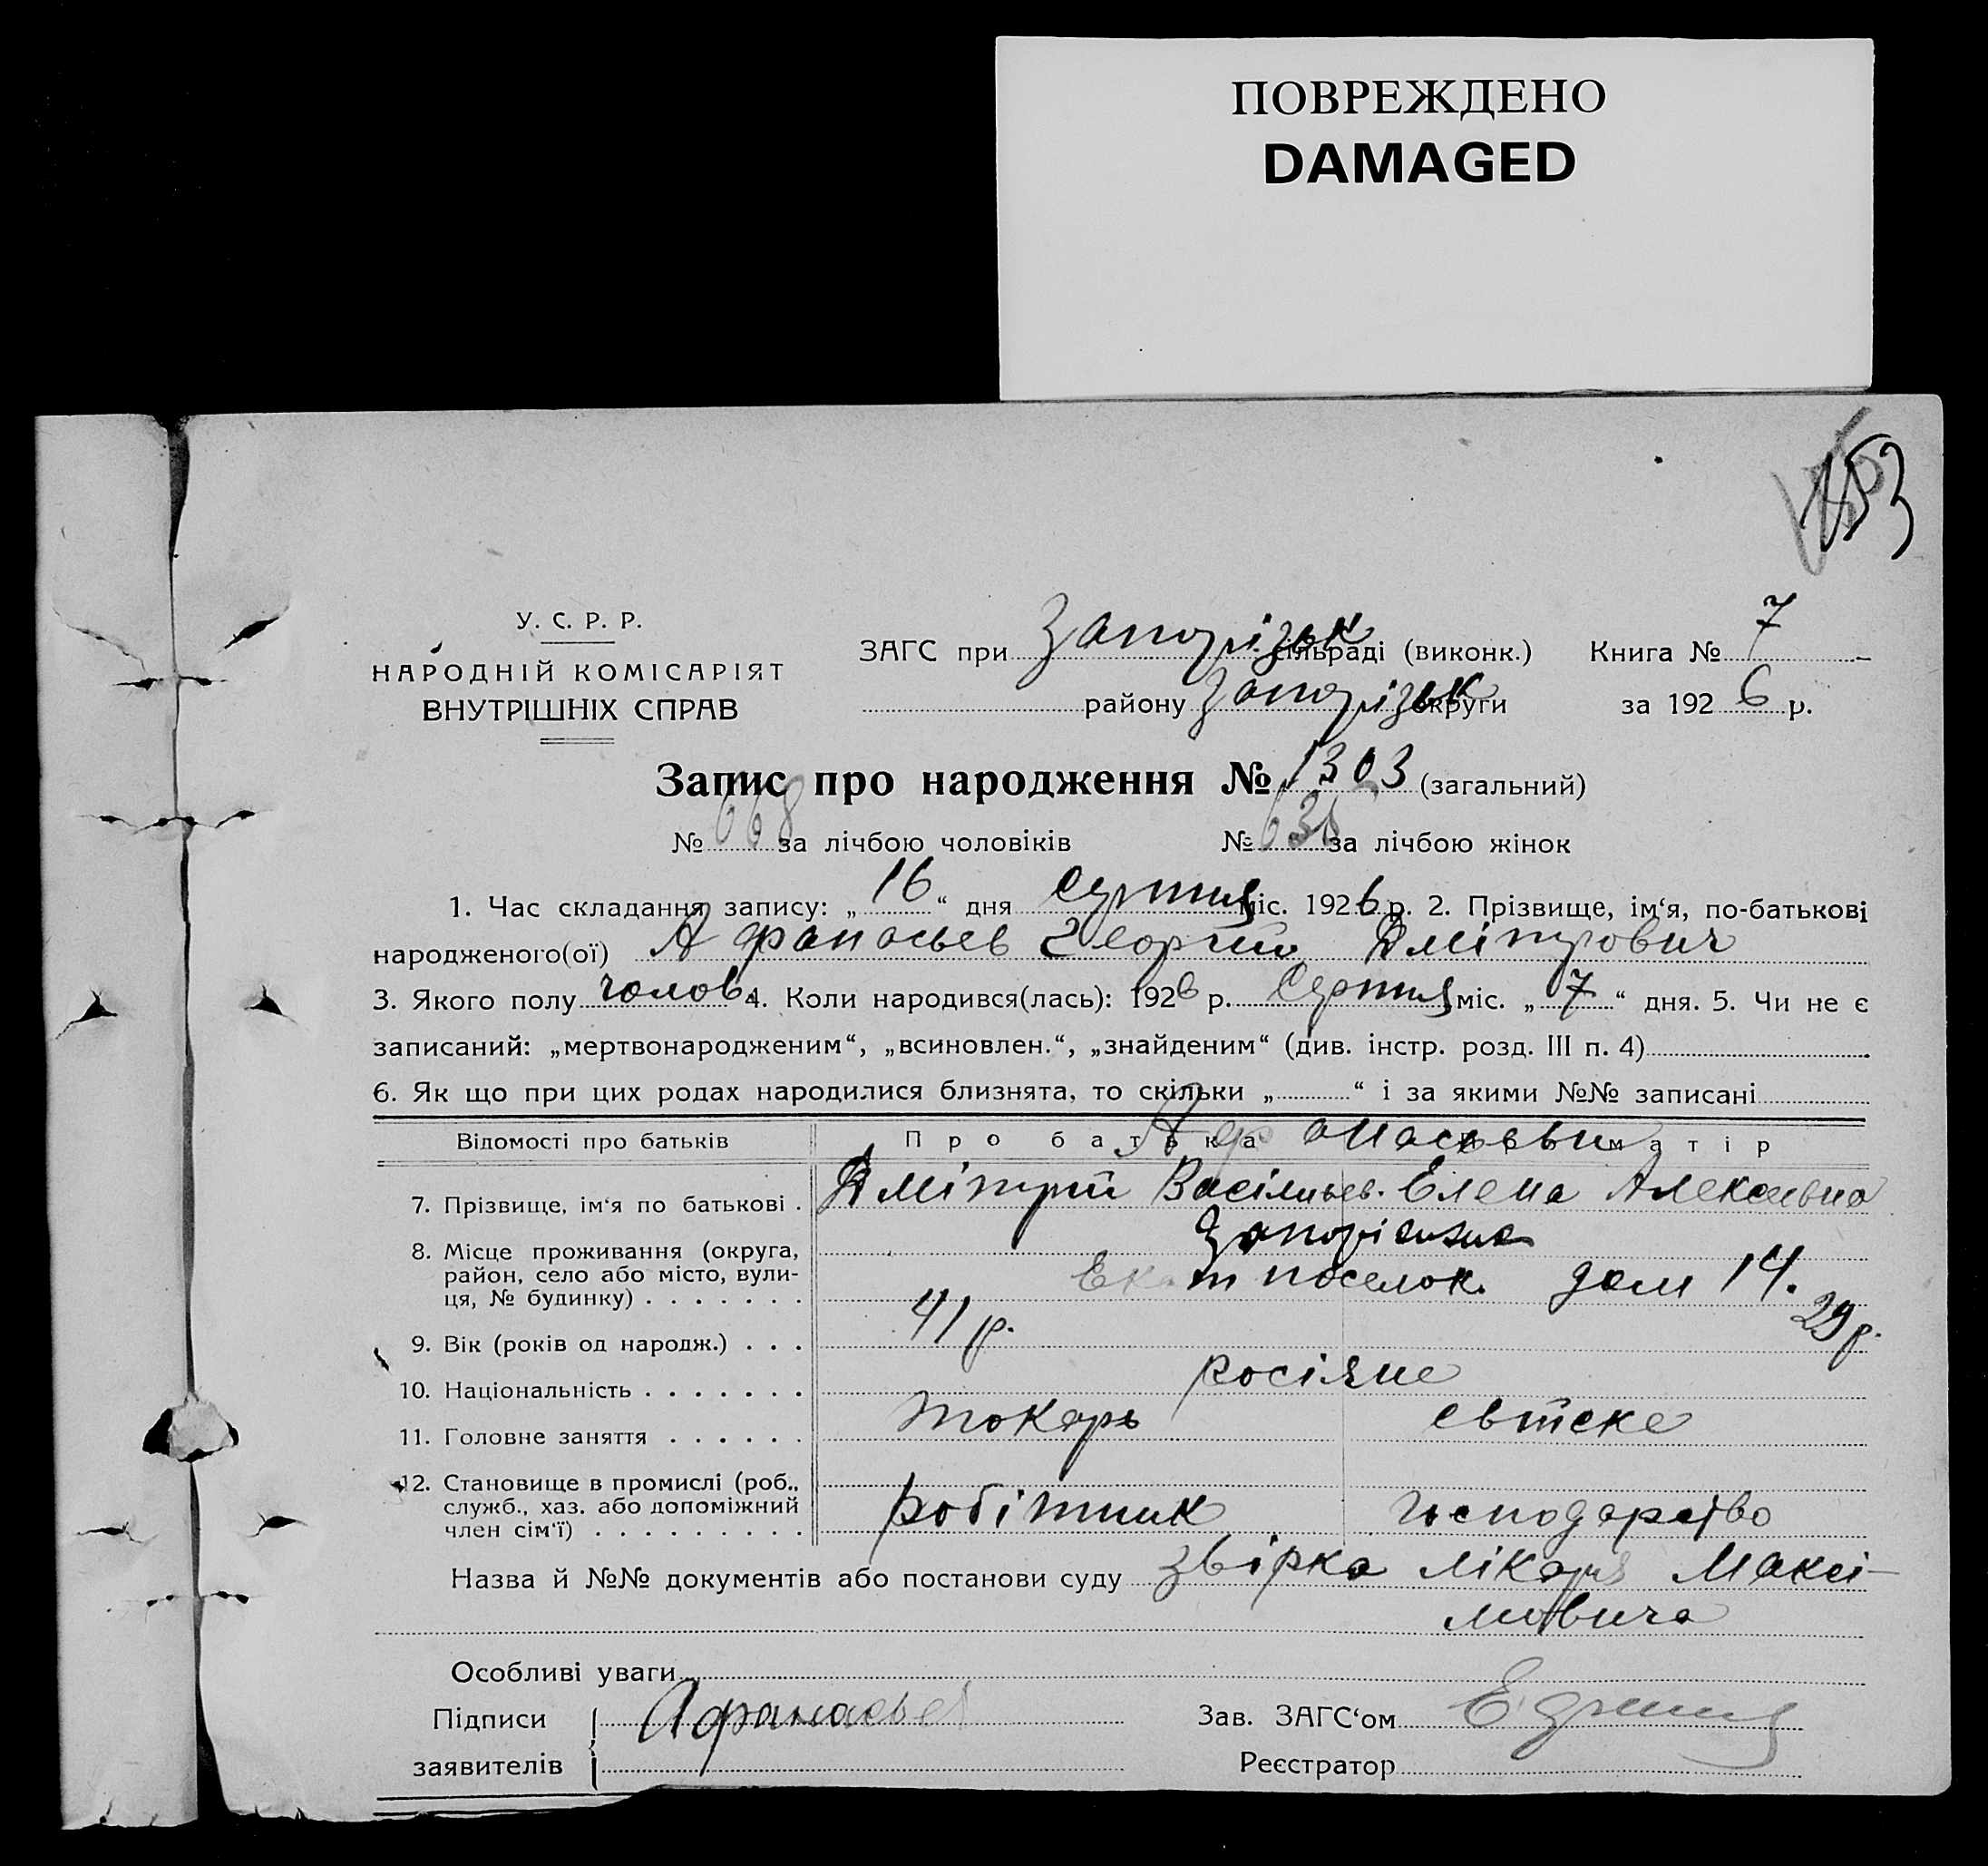 ПОВРЕЖДЕНО
DAMAGED
153
У. С. Р. Р.
НАРОДНІЙ КОМІСАРІЯТ
ВНУТРІШНІХ СПРАВ
ЗАГС при Запорізьк сільраді (виконк.) Книга № 7
району Запорізьк округи за 1926 р.
Запис про народження № 1303 (загальний)
№ 668 за лічбою чоловіків № 635 за лічбою жінок
1. Час складання запису: „16“ дня Серпня міс. 1926 р. 2. Прізвище, ім‘я, по-батькові
народженого(ої) Афанасьев Георгий Дмітрович
3. Якого полу чолов. 4. Коли народився(лась): 1926 р. Серпня міс. „7“ дня. 5. Чи не є
записаний: „мертвонародженим“, „всиновлен.“, „знайденим“ (див. інстр. розд. III п. 4)
6. Як що при цих родах народилися близнята, то скільки „ “ і за якими №№ записані
Відомості про батьків Про батька Про матір
Афанасьеви
7. Прізвище, ім‘я по батькові . Дмітрий Васільев. Елена Алексеевна
8. Місце проживання (округа,
район, село або місто, вули-
ця, № будинку) . . . . . . . Запоріжжя
поселок. дом 14.
9. Вік (років од народж.) . . . 41 р. 29 р.
10. Національність . . . . . . . росіяне
11. Головне заняття . . . . . . токарь
12. Становище в промислі (роб.,
служб., хаз. або допоміжний
член сім‘ї) . . . . . . . . . робітник господарство
Назва й №№ документів або постанови суду звірка лікаря Максі-
мовича
Особливі уваги
Підписи Афанасьев Зав. ЗАГС‘ом
заявителів Реєстратор